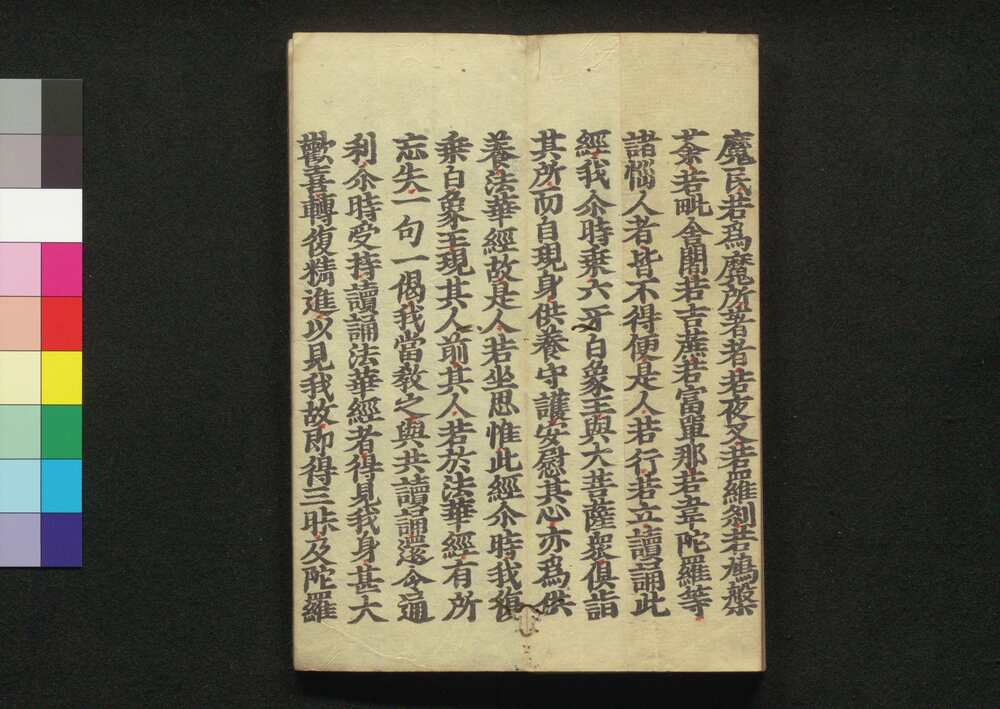 魔民若爲魔所著者若夜叉若羅刹若鳩槃
茶若毗舍闍若吉蔗若富單那若韋陀羅等
諸惱人者皆不得便是人若行若立讀誦此
經我尒時乗六牙白象王與大菩薩衆俱詣
其所而自現身供養守護安慰其心亦爲供
養法華經故是人若坐思惟此經尒時我復
乗白象王現其人前其人若於法華經有所
忘失一句一偈我當教之與共讀誦還令通
利尒時受持讀誦法華經者得見我身甚大
歡喜轉復精進以見我故即得三昧及陀羅